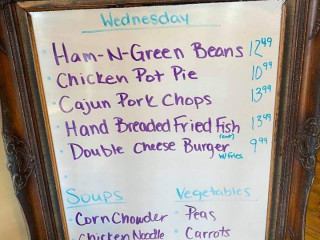 Wednesday
Ham-N-Green Beans 12.49
Chicken Pot Pie 10.99
Cajun Pork Chops 13.99
Hand Breaded Fried Fish 13.49
Double Cheese Burger 9.99
W/Fries
Soups Vegetables
Corn Chowder Peas
Chicken Noodle Carrots